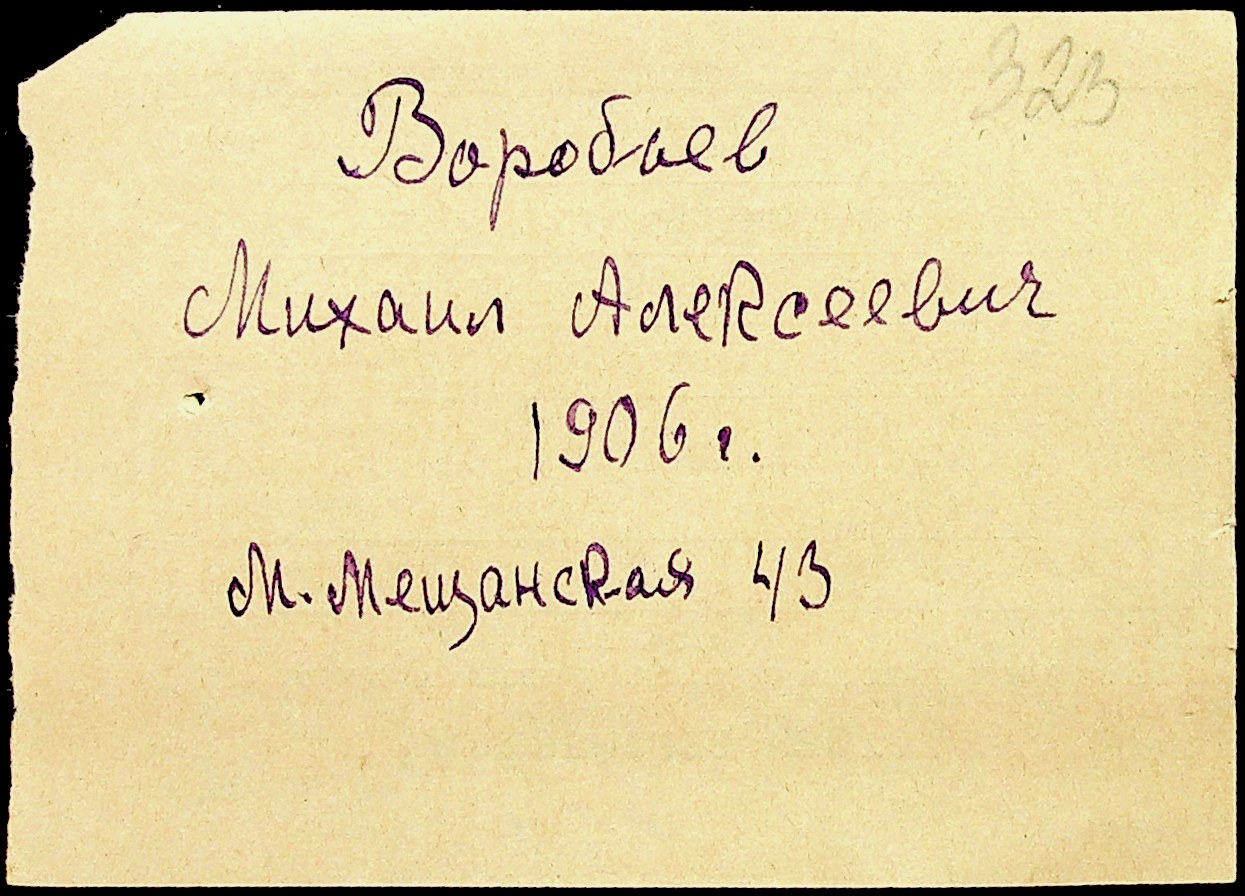 323
Воробьев
Михаил Алексеевич
1906 г.
М. Мещанская 43